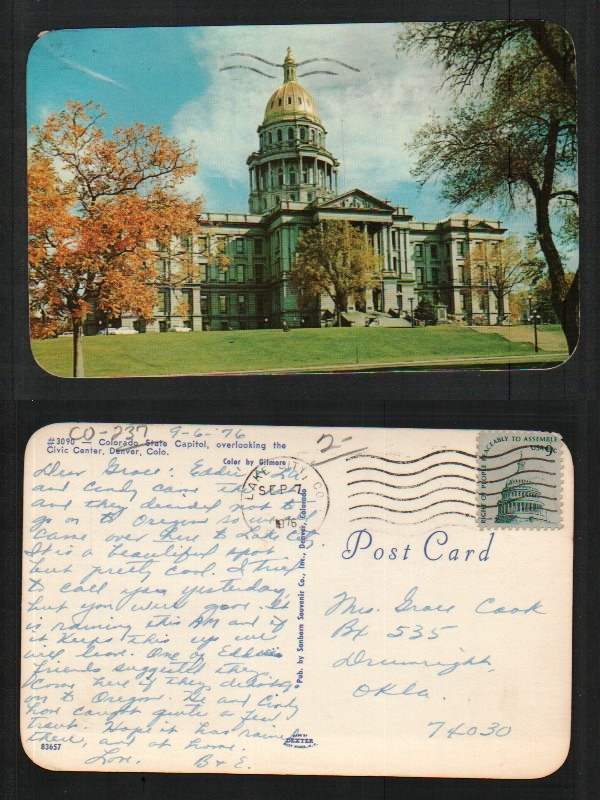 CO-237 9-6-76
#3090 — Colorado State Capitol, overlooking the
Civic Center, Denver, Colo.
Color by Gilmore
2-
LAKE CITY CO
SEP 7
1976
RIGHT OF PEOPLE PEACEABLY TO ASSEMBLE
USA 9c
Post Card
Dear Grace: Eddie,
and Cindy came
and they decided not to
go on to Oregon so we all
came over here to Lake City.
It is a beautiful spot
but pretty cool. I tried
to call you yesterday,
but you were gone. It
is raining this AM and if
it keeps this up we
will leave. One of Eddie's
friends suggested they
come here if they
on to Oregon. He and Cindy
have caught quite a few
trout. Hope it has rained
there, and at home.
Love, B & E.
Pub. by Sanborn Souvenir Co., Inc., Denver, Colorado
Mrs. Grace Cook
Bx 535
Drumright,
Okla.
74030
83657
DEXTER
WEST NYACK, N.Y.